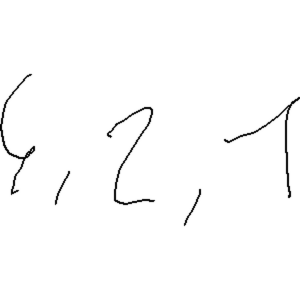 4, 2, 1